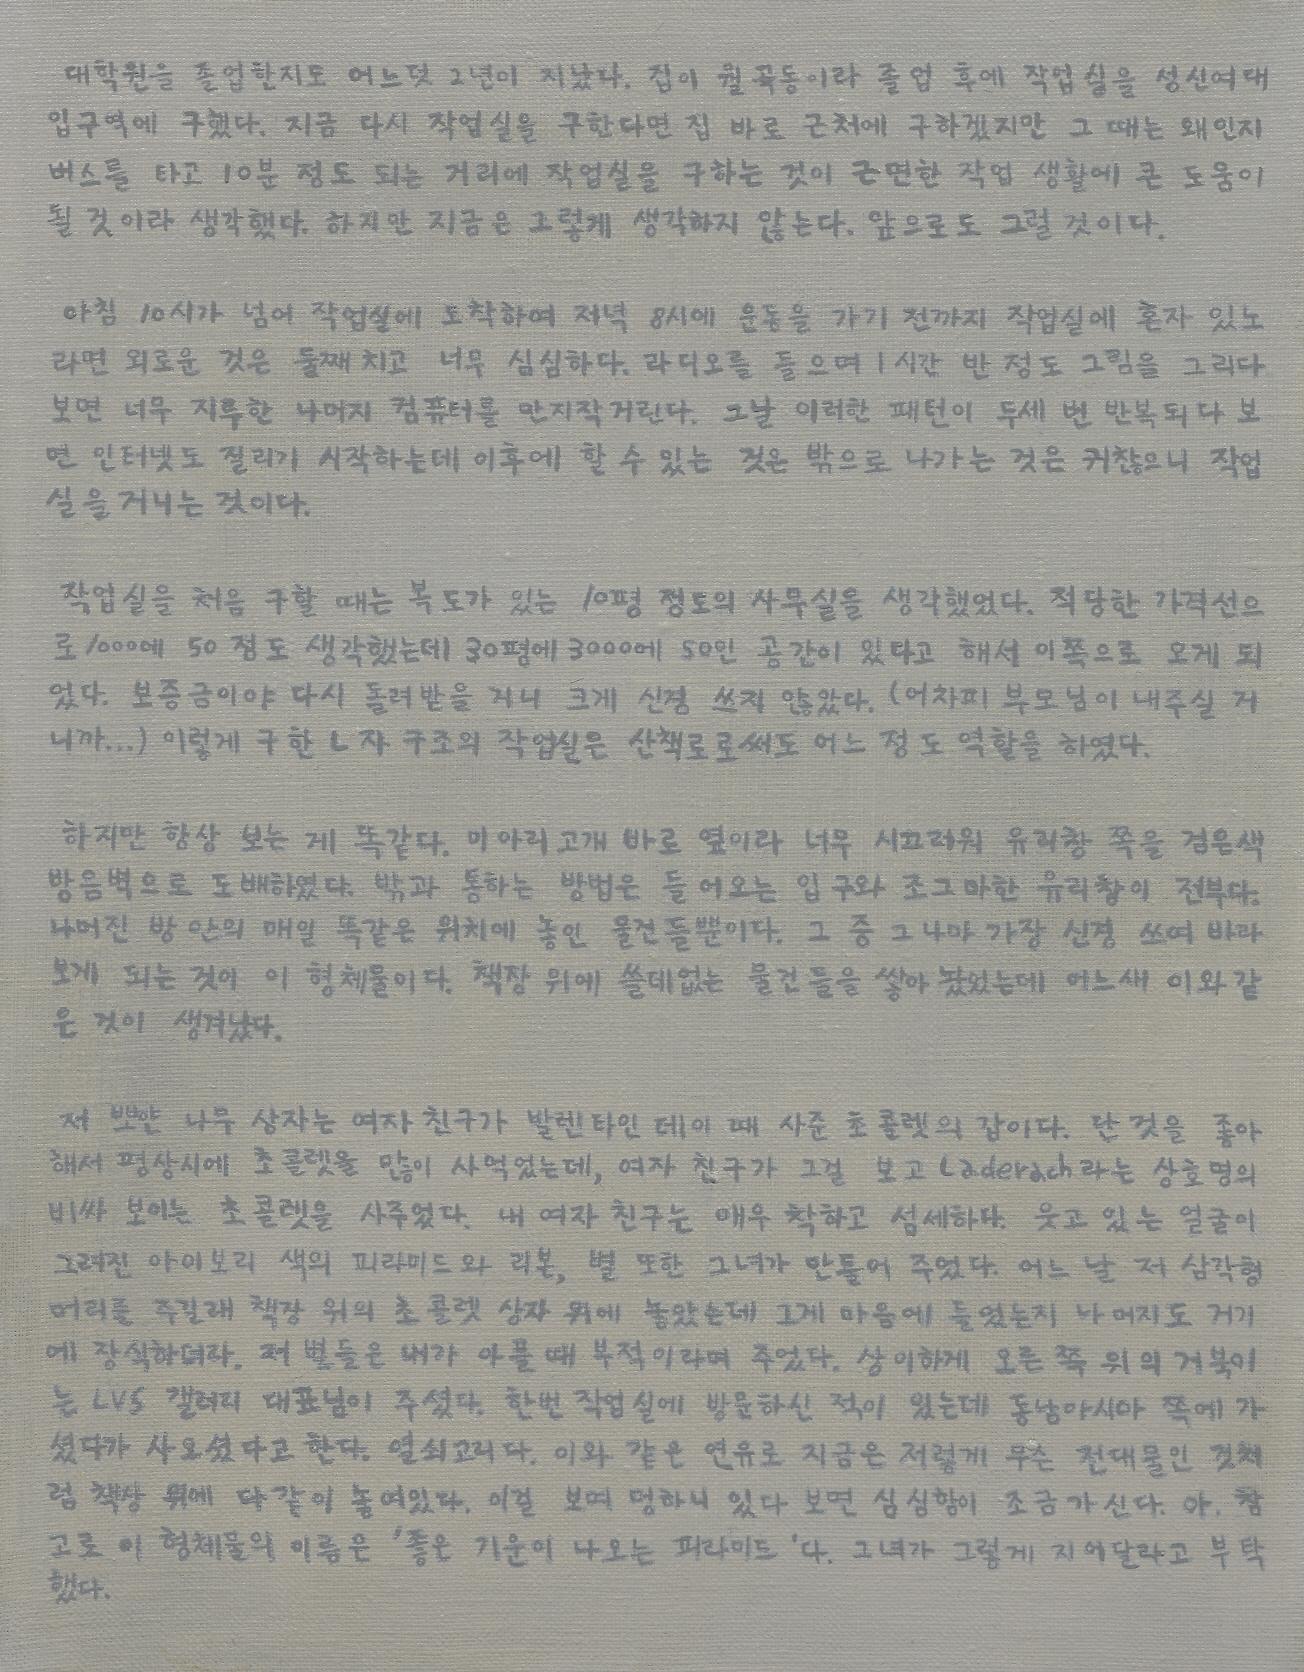 대학원을 졸업한지도 어느덧 2년이 지났다. 집이 월곡동이라 졸업 후에 작업실을 성신여대
입구역에 구했다. 지금 다시 작업실을 구한다면 집 바로 근처에 구하겠지만 그 때는 왜인지
버스를 타고 10분 정도 되는 거리에 작업실을 구하는 것이 근면한 작업 생활에 큰 도움이
될 것이라 생각했다. 하지만 지금은 그렇게 생각하지 않는다. 앞으로도 그럴 것이다.
아침 10시가 넘어 작업실에 도착하여 저녁 8시에 운동을 가기 전까지 작업실에 혼자 있노
라면 외로운 것은 둘째치고 너무 심심하다. 라디오를 들으며 1시간 반 정도 그림을 그리다
보면 너무 지루한 나머지 컴퓨터를 만지작거린다. 그날 이러한 패턴이 두세 번 반복되다 보
면 인터넷도 질리기 시작하는데 이후에 할 수 있는 것은 밖으로 나가는 것은 귀찮으니 작업
실을 거니는 것이다.
작업실을 처음 구할 때는 복도가 있는 10평 정도의 사무실을 생각했었다. 적당한 가격선으
로 1000에 50 정도 생각했는데 30평에 3000에 50인 공간이 있다고 해서 이쪽으로 오게 되
었다. 보증금이야 다시 돌려받을 거니 크게 신경 쓰지 않았다. (어차피 부모님이 내주실 거
니까...) 이렇게 구한 L자 구조의 작업실은 산책로로써도 어느 정도 역할을 하였다.
하지만 항상 보는 게 똑같다. 미아리고개 바로 옆이라 너무 시끄러워 유리창 쪽을 검은색
방음벽으로 도배하였다. 밖과 통하는 방법은 들어오는 입구와 조그마한 유리창이 전부다.
나머진 방 안의 매일 똑같은 위치에 놓인 물건들뿐이다. 그 중 그나마 가장 신경 쓰여 바라
보게 되는 것이 이 형체물이다. 책장 위에 쓸데없는 물건들을 쌓아 놨었는데 어느새 이와 같
은 것이 생겨났다.
저 뽀얀 나무 상자는 여자 친구가 발렌타인 데이 때 사준 초콜렛의 갑이다. 단 것을 좋아
해서 평상시에 초콜렛을 많이 사먹었는데, 여자 친구가 그걸 보고 Laderach라는 상호명의
비싸 보이는 초콜렛을 사주었다. 내 여자 친구는 매우 착하고 섬세하다. 웃고 있는 얼굴이
그려진 아이보리 색의 피라미드와 리본, 별 또한 그녀가 만들어 주었다. 어느 날 저 삼각형
머리를 주길래 책장 위의 초콜렛 상자 위에 놓았는데 그게 마음에 들었는지 나머지도 거기
에 장식하더라. 저 별들은 내가 아플 때 부적이라며 주었다. 상이하게 오른쪽 위의 거북이
는 LVS 갤러리 대표님이 주셨다. 한번 작업실에 방문하신 적이 있는데 동남아시아 쪽에 가
셨다가 사오셨다고 한다. 열쇠고리다. 이와 같은 연유로 지금은 저렇게 무슨 전대물인 것처
럼 책장 위에 다 같이 놓여있다. 이걸 보며 멍하니 있다 보면 심심함이 조금 가신다. 아. 참
고로 이 형체물의 이름은 '좋은 기운이 나오는 피라미드'다. 그녀가 그렇게 지어달라고 부탁
했다.